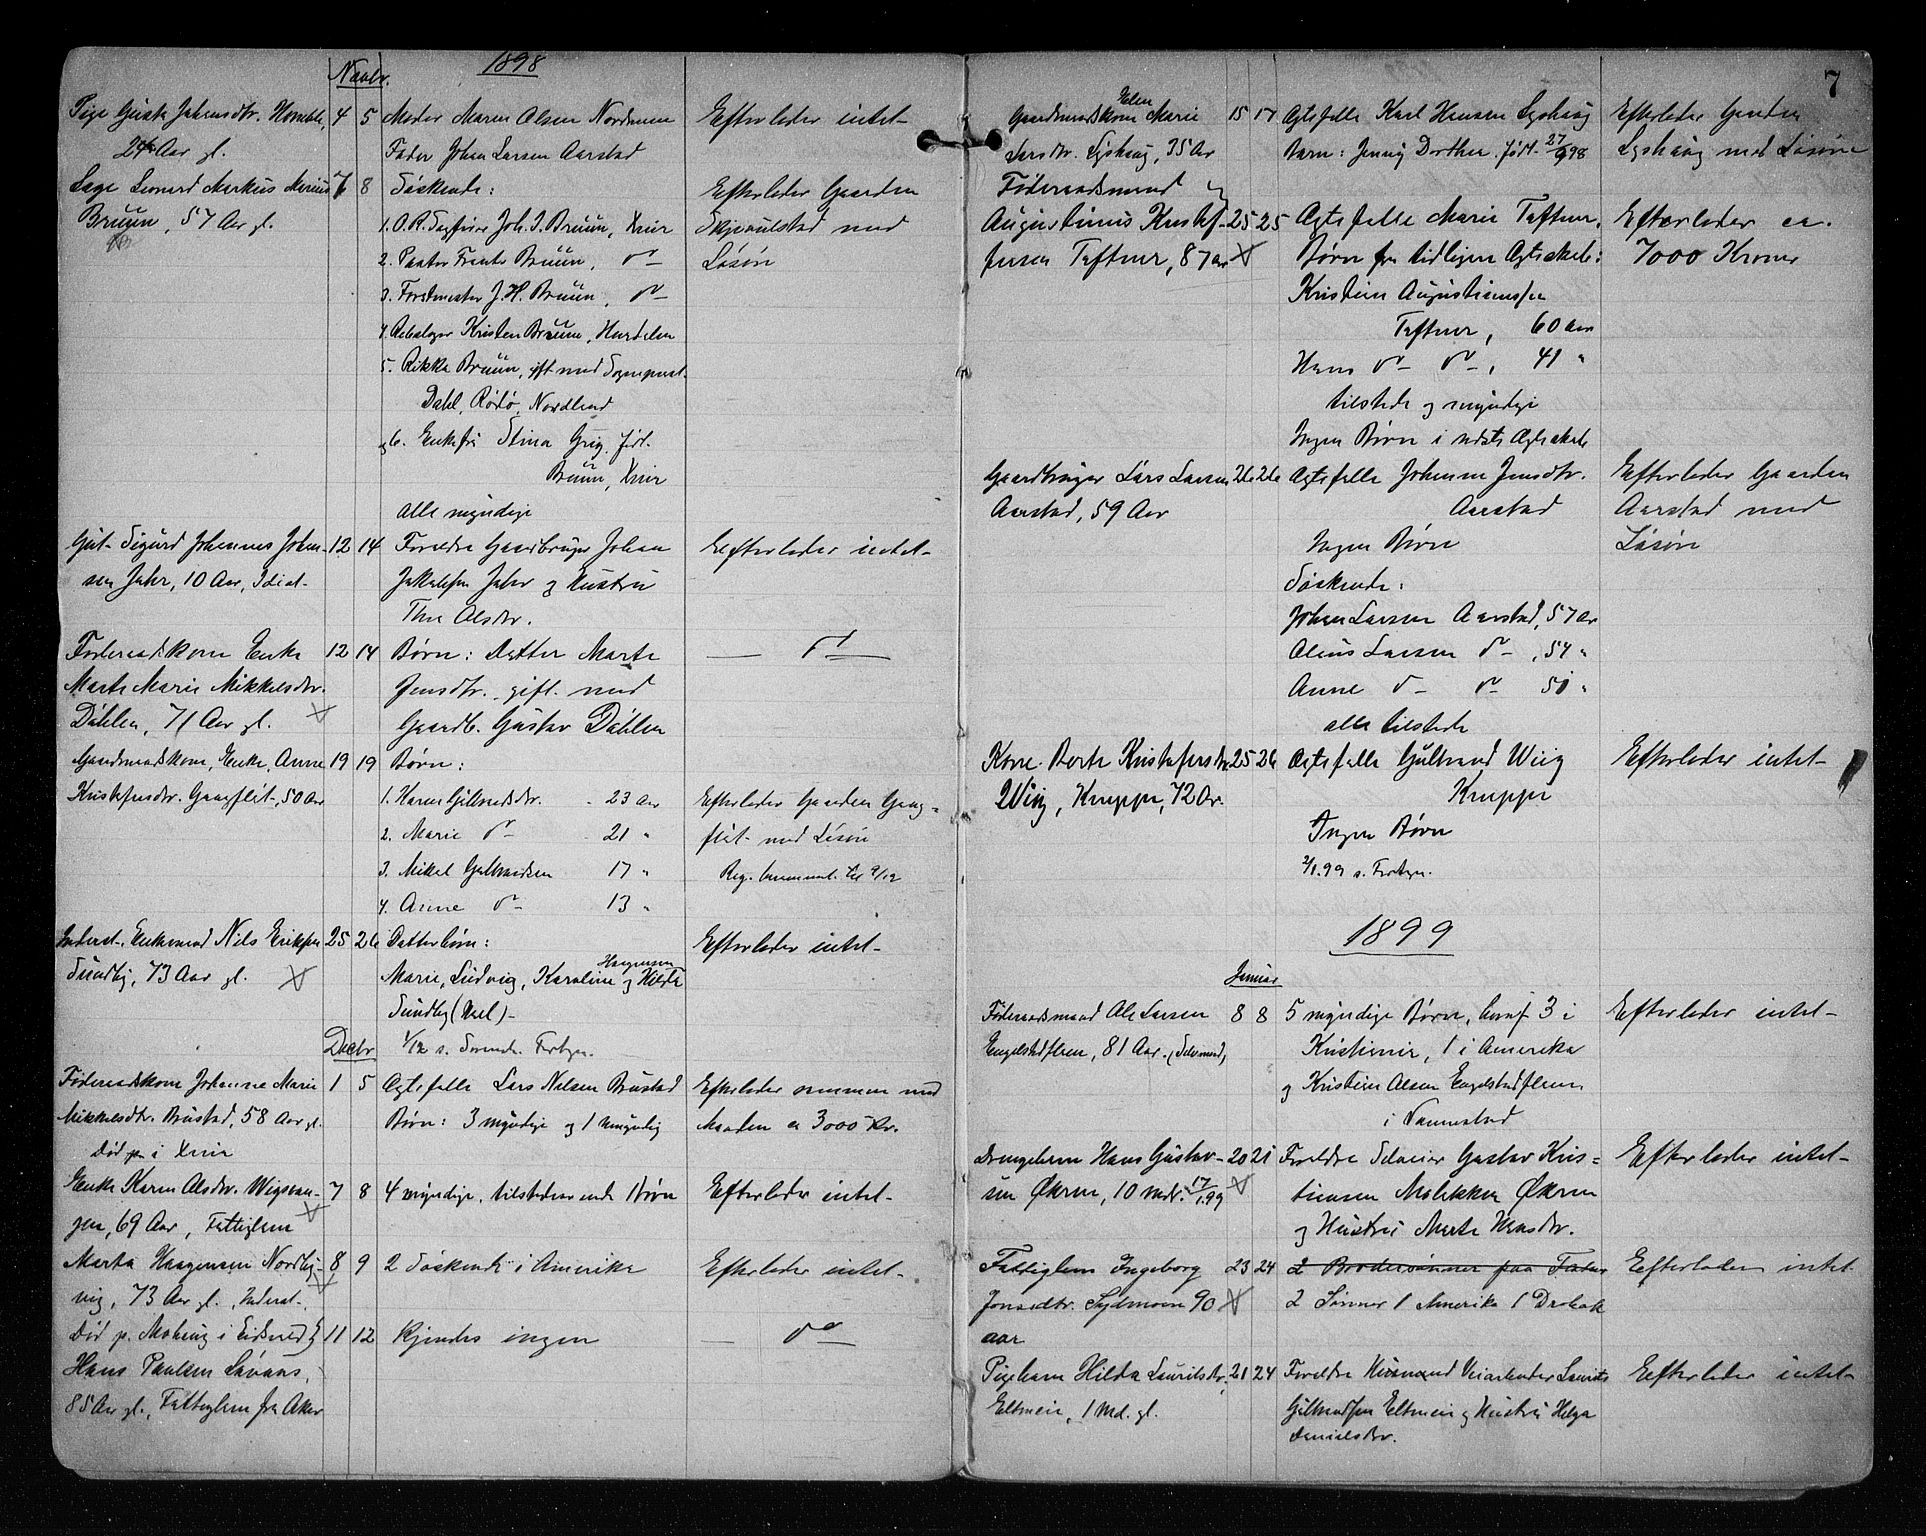 1898
Novbr.
Pige Gusta Johansdtr. 4 5 Moder Maren Olsen Nordmoen Efterlader intet-
24 Aar gl. Fader Johan Larsen Aarstad
Leonard Markus Marius 7 8 Søskende: Efterlader Gaarden
Bruun, 57 Aar gl. 1. O.R. Sagfører Joh. Bruun, Xnia med
2. Pastor Bruun, do Løsøre
3. Forstmester J.H. Bruun, do
4. Kristen Bruun, Hurdalen
5. Rikka Bruun, gift med Sognepræst
Dahl, Rødø, Nordland
og 6. Enkefru Stina Grig, født
Bruun, Xnia
Alle myndige
Gut Sigurd Johannes Johan- 12 14 Foreldre Gaardbruger Johan Efterlader intet-
sen Jahr, 10 Aar, Idiot- Jakobsen Jahr og Hustru
Thea Olsdtr.
Føderaadskone Enke 12 14 Børn: Datter Marte do
Marte Marie Mikkelsdtr. Jensdtr. gift med
Døhlen, 71 Aar gl. Gaardb. Gustav Døhlen
Gaardmandskone, Enke, Anne 19 19 Børn:
Kristofersdtr. 50 Aar 1. Karen Gulbrandsdtr. 23 Aar Efterlader Gaarden
2. Marie do 21 " med Løsøre
3. Mikal Gulbrandsen 17 " Reg. berammet til 9/12
4. Anne do 13 "
Inderst, Enkemand Nils Eriksen 25 26 Datterbørn: Efterlader intet-
Sundby, 73 Aar gl. Haagensen
Marie, Ludvig, Karoline og Hilda
Sundby
Decbr 1/12 s.
Føderaadskone Johanne Marie 1 5 Ægtefelle Lars Nilsen Brustad Efterlader sammen med
Mikkelsdtr. Brustad, 58 Aar gl. Børn: 3 myndige og 1 umyndig Manden ca 3000 Kr.
Død i Xnia
Enke Karen Olsdtr. Wigsvan- 7 8 4 myndige, tilstedeværende Børn Efterlader intet-
gen, 69 Aar, Fattiglem
Marta Haagensen Nordby- 8 9 2 Søskende i Amerika Efterlader intet-
vig, 73 Aar gl., Inderst-
Død p. i Eidsvold 11 12 Kjendes ingen do
Hans Paulsen
85 Aar gl., Fattiglem fra Aker
7
Elen
Gaardmandskone Marie 15 17 Ægtefelle Karl Hansen Lyshaug Efterlader Gaarden
Larsdtr. Lyshaug, 35 Ar Barn: Jenny Dorthea. født 27/9 98 Lyshaug med Løsøre
Føderaadsmand
Augustinus Kristof- 25 25 Ægtefelle Marie Taftner, Efterlader ca.
fersen Taftner, 87 ar Børn fra tidligere Ægteskab: 7000 Kroner
Kristian Augustinussen
Taftner, 60 Aar
Hans do do, 41 "
tilstede og myndige
Ingen Børn i sidste Ægteskab
Gaardbruger Lars Larsen 26 26 Ægtefelle Johanne Jensdtr. Efterlader Gaarden
Aarstad, 59 Aar Aarstad Aarstad med
Ingen Børn Løsøre
Søskende:
Johan Larsen Aarstad, 57 Ar
Larsen do, 54 "
Anne do do 50 "
alle tilstede
Kone Berte Kristofersdtr 25 26 Ægtefelle Gulbrand Wiig Efterlader intet-
Wiig, Knuppe, 72 Ar. Knuppe
Ingen Børn
2/1.99 s.
1899
Januar
Føderaadsmand Ole Larsen 8 8 5 myndige Børn, hvoraf 3 i Efterlader intet-
Engelstadflaen, 81 Aar. Kristiania, 1 i Amerika
og Kristian Olsen Engelstadflaen
i Nannestad
Drengebarn Hans Gustav- 20 21 Foreldre Selveier Gustav Kris- Efterlader intet-
sen Økren, 10 mdr. 17/1.99 tiansen Økren
og Hustru Marte Hansdtr.
Fattiglem Ingeborg 23 24 2 Brodersønner paa Efterlader intet
Jonsdtr. Sydmoen 90 2 Sønner 1 Amerika 1 Drøbak
aar
Pigebarn Hilda Lauritsdtr. 21 24 Foreldre Husmand Veiarbeider Laurits Efterlader intet-
Elstneie, 1 Md. gl. Gulbrandsen Elstneie og Hustru Helga
Danielsdtr.